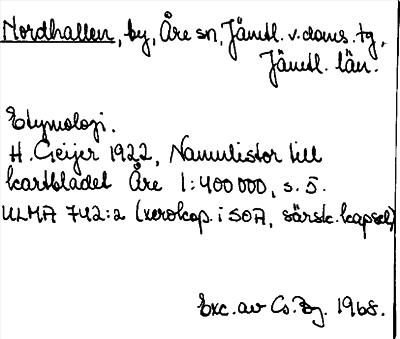 Nordhallen, by, Åre sn, Jämtl. v. doms. tg,
Jämtl. län.
Etymologi.
H. Geijer 1922, Namnlistor till
kartbladet Åre 1:400 000, s. 5.
ULMA 742:2 (xerokop. i SOA, särsk. kapsel)
Exc. av 1968.